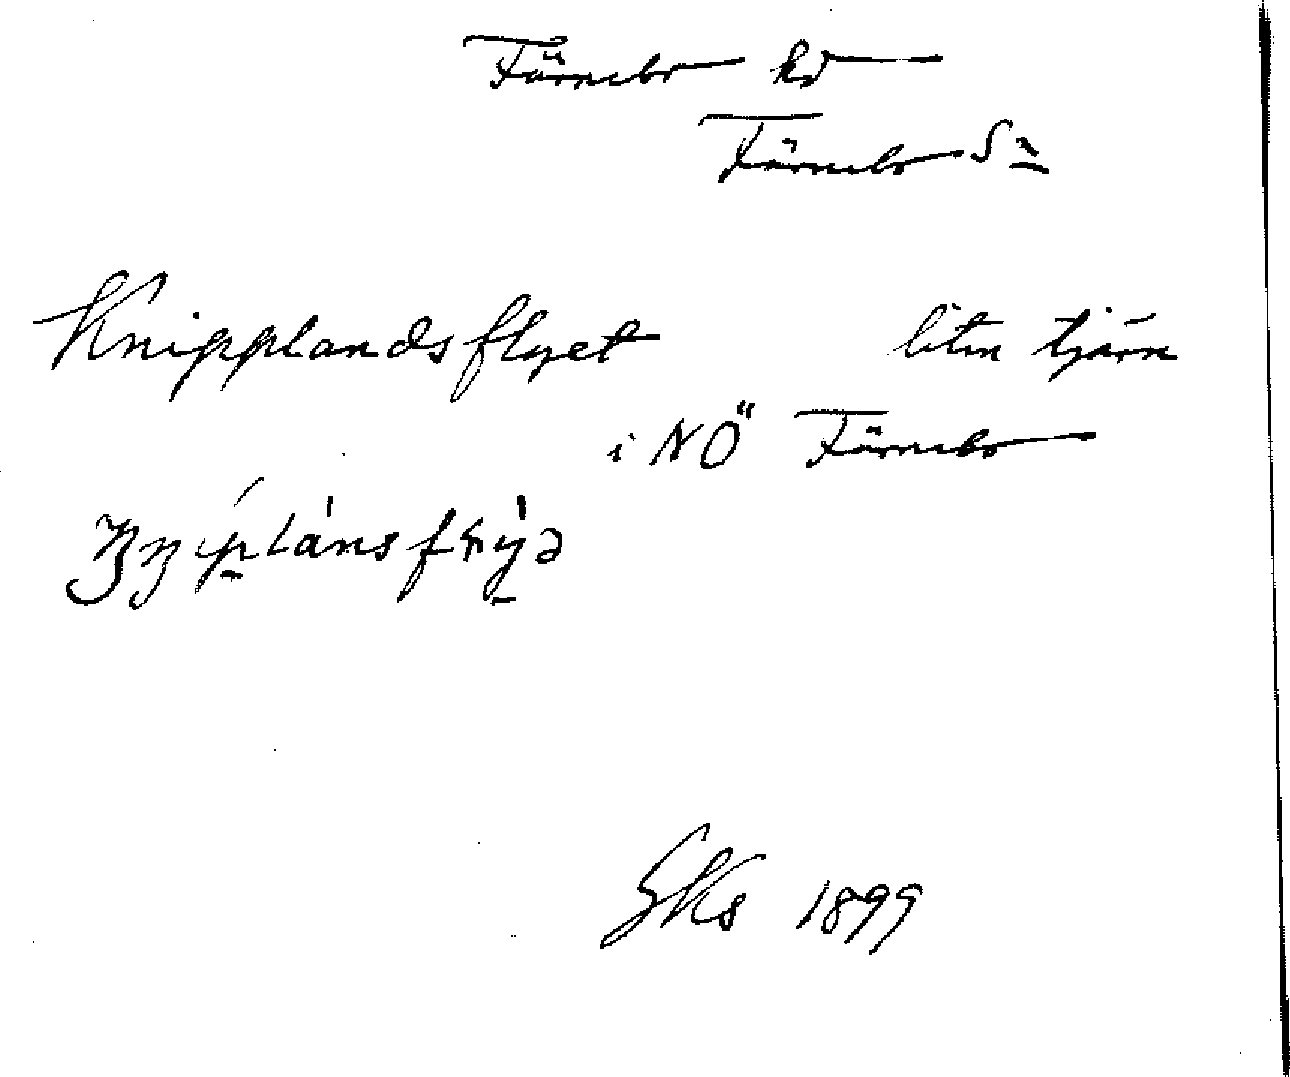 Färnebo hd
Färnebo Sn
Knipplandsflyet liten tjärn
i NÖ Färnebo
GKs 1899